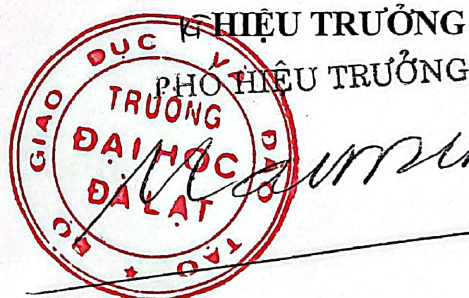 HIỆU TRƯỞNG
PHÓ HIỆU TRƯỞNG
BỘ GIÁO DỤC VÀ ĐÀO TẠO
TRƯỜNG
ĐẠI HỌC
ĐÀ LẠT